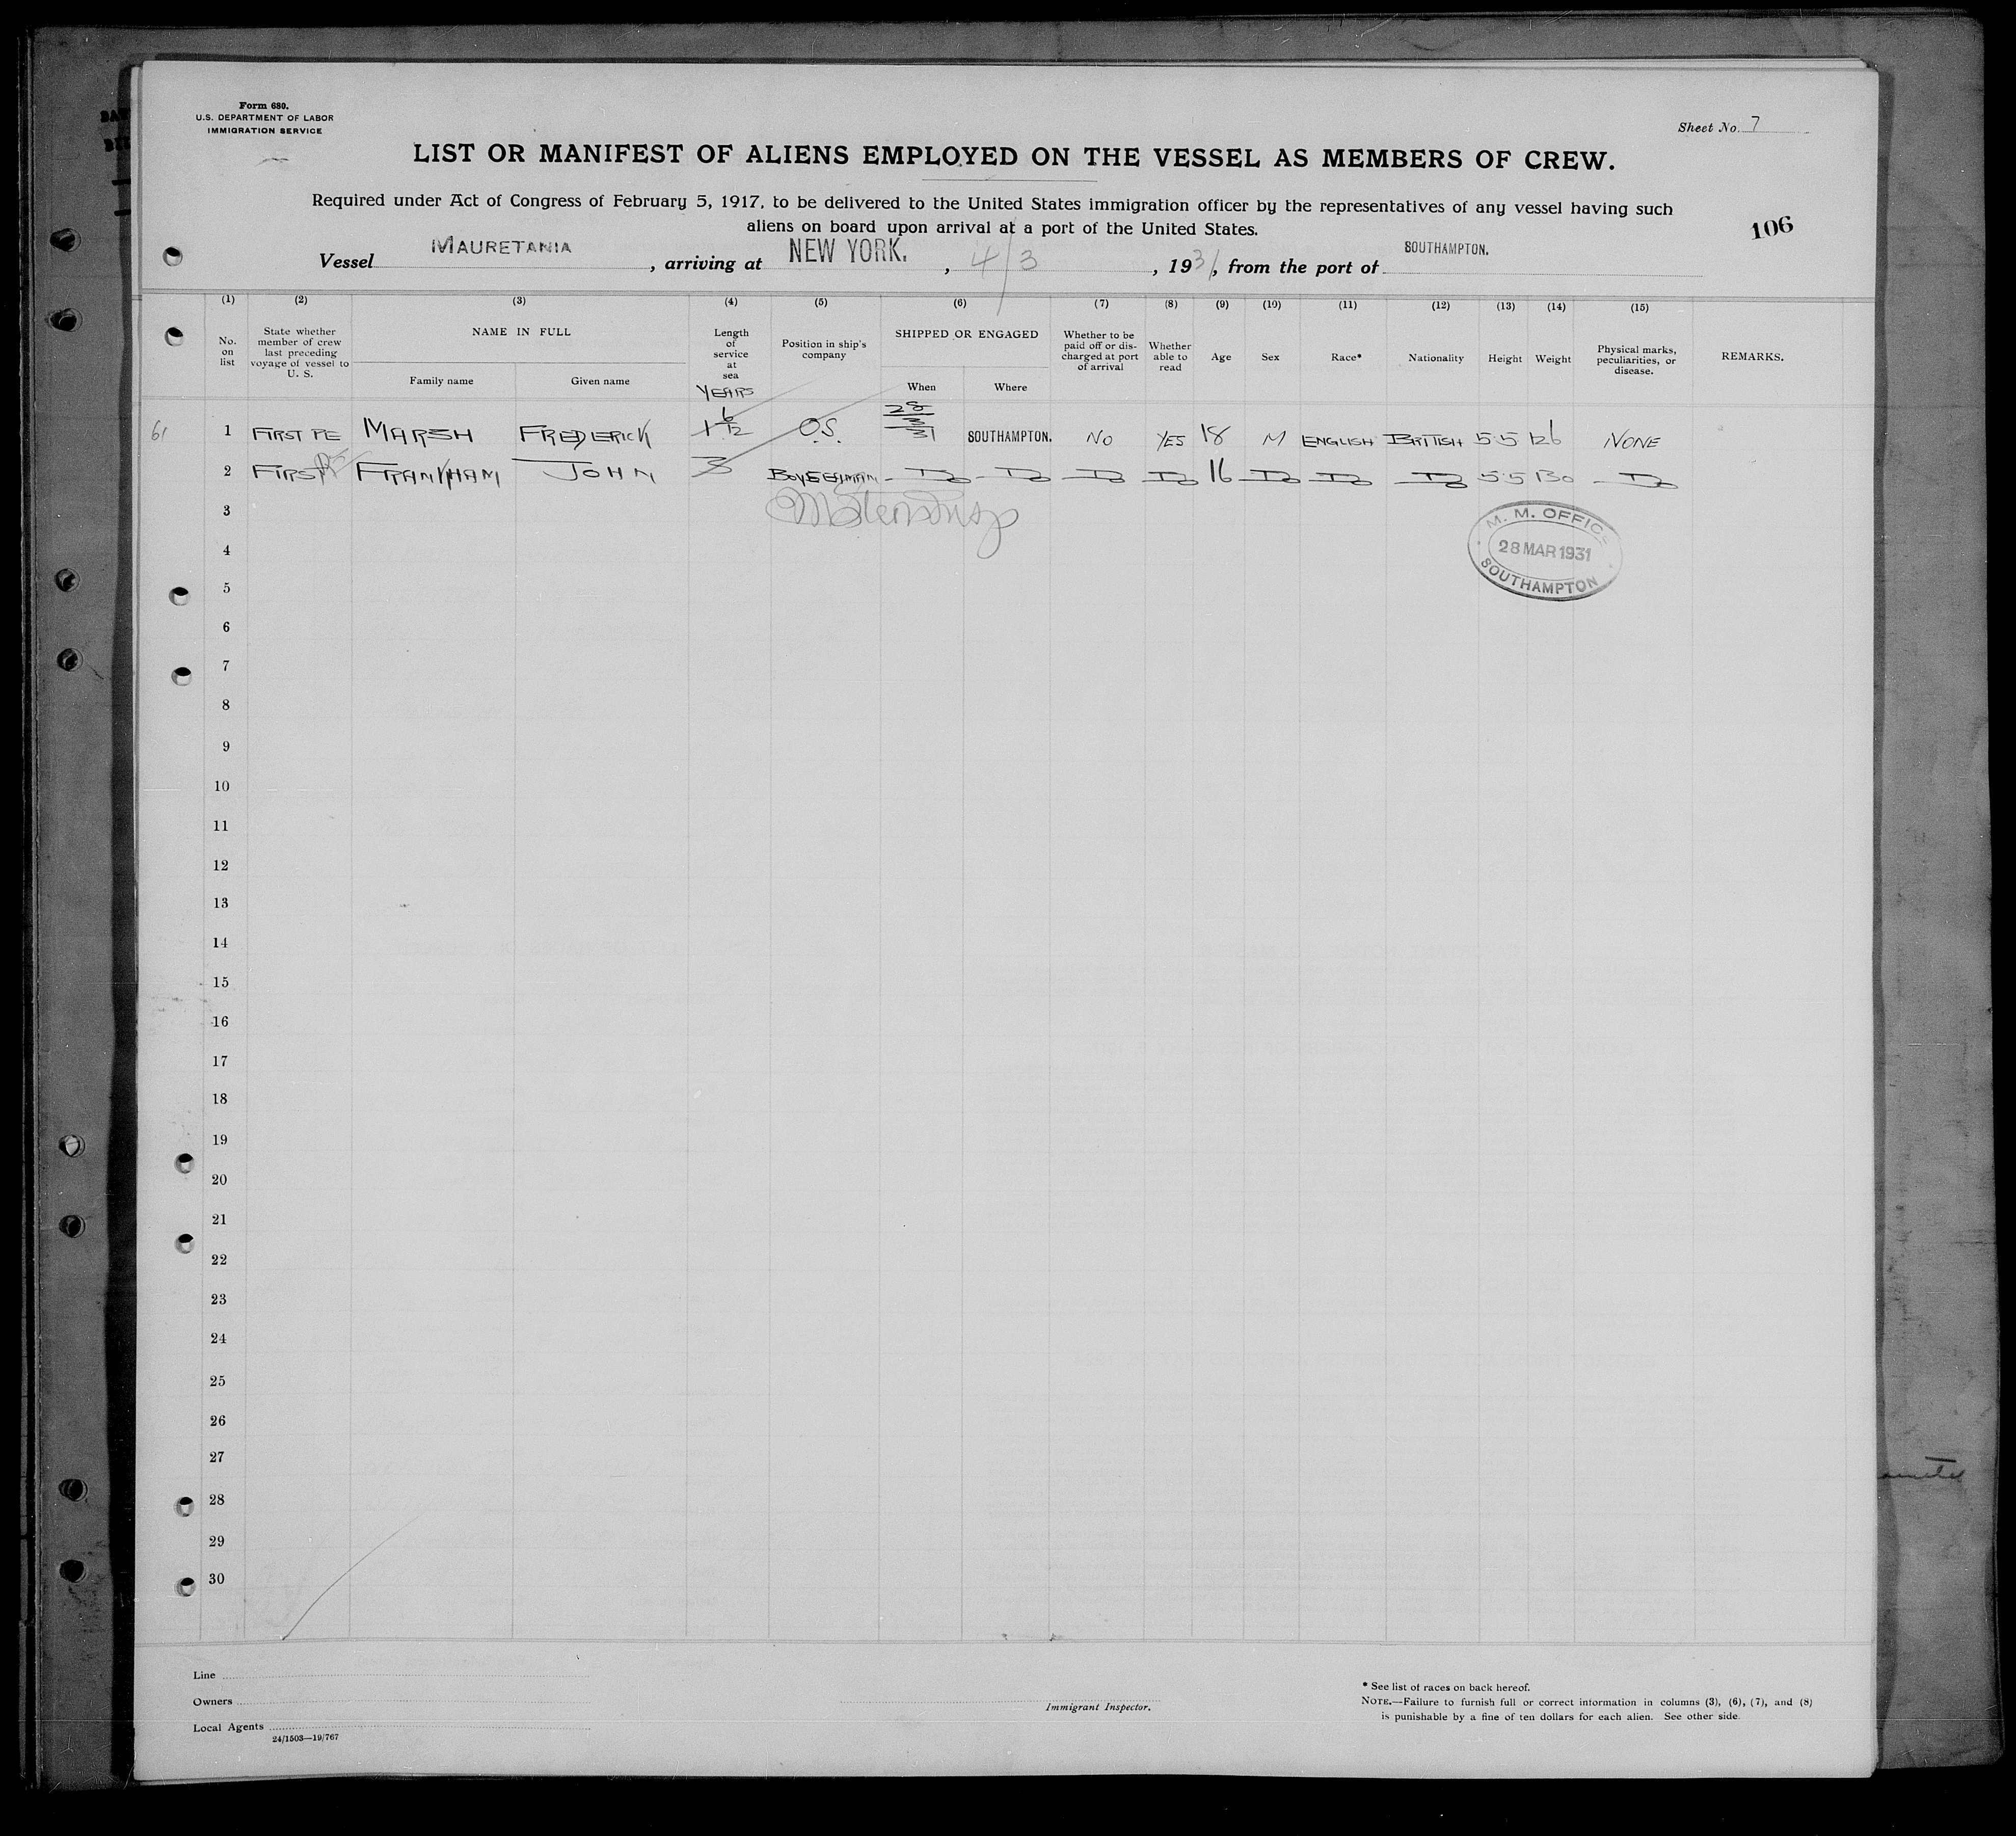 Form 680.
U.S. DEPARTMENT OF LABOR
IMMIGRATION SERVICE
Sheet No. 7
LIST OR MANIFEST OF ALIENS EMPLOYED ON THE VESSEL AS MEMBERS OF CREW.
Required under Act of Congress of February 5, 1917, to be delivered to the United States immigration officer by the representatives of any vessel having such
aliens on board upon arrival at a port of the United States.
106
Vessel MAURETANIA, arriving at NEW YORK., 4/3, 1931, from the port of SOUTHAMPTON.
(1) (2) (3) (4) (5) (6) (7) (8) (9) (10) (11) (12) (13) (14) (15)
No. on list
State whether member of crew last preceding voyage of vessel to U. S.
NAME IN FULL
Family name
Given name
Length of service at sea
YEARS
Position in ship's company
SHIPPED OR ENGAGED
When
Where
Whether to be paid off or discharged at port of arrival
Whether able to read
Age
Sex
Race*
Nationality
Height
Weight
Physical marks, peculiarities, or disease.
REMARKS.
61 1 FIRST MARSH FREDERICK 1 6/12 O.S. 28/3/31 SOUTHAMPTON. NO YES 18 M ENGLISH BRITISH 5 5 126 NONE
2 FIRST FRANKHAM JOHN 3 Do Do Do Do 16 Do Do Do 5 5 130 Do
3
M. M. OFFICE
28 MAR 1931
SOUTHAMPTON
4
5
6
7
8
9
10
11
12
13
14
15
16
17
18
19
20
21
22
23
24
25
26
27
28
29
30
Line
Owners
Local Agents
24/1503—19/767
Immigrant Inspector.
* See list of races on back hereof.
NOTE.—Failure to furnish full or correct information in columns (3), (6), (7), and (8)
is punishable by a fine of ten dollars for each alien. See other side.